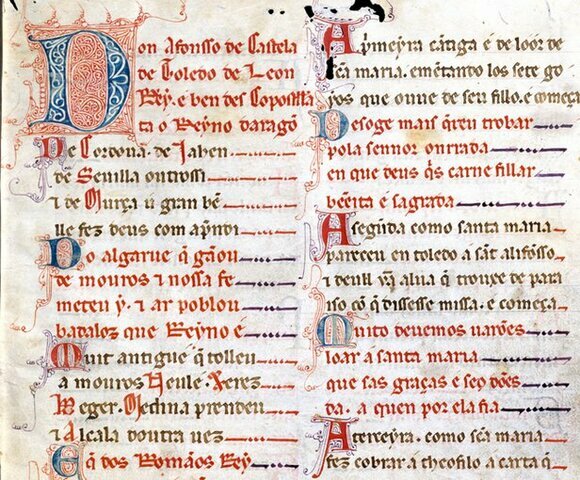 Don Afonsso de Castela
de Toledo de Leon
Rey. e ben des Conpostela
ta o Reyno daragō
De Cordoua. de Jahen
de Seuilla outrossi
⁊ de Murça u gran bē
lle fez deus com apndi
Do algarue q̄ gāou
de mouros ⁊ nossa fe
meteu y. ⁊ ar poblou
badalloz que Reyno é
Muit antigue q̄ tolleu
a mouros Neule. Xerez
Beger. Medina prendeu
⁊ Alcala doutra uez
E q̄ dos Romãos Rey
A pimeyra cātiga é de loor de
sc̄a maria. emētando los sete go
yos que ouue de seu fillo. e começa
Des oge mais q̄reu trobar
pola sennor onrrada
en que deus q̄s carne fillar
bēeita e sagrada
A segūda como santa maria
pareceu en toledo a sāt alifōsso
⁊ deull ūa alua q̄ trouxe de para
iso cō q̄ dissesse missa. e começa
Muito deuemos uarões
loar a santa maria
que sas graças e seus dões
da. a quen por ela fia
A terceyra. como sc̄a maria
fez cobrar a theofilo a carta q̄